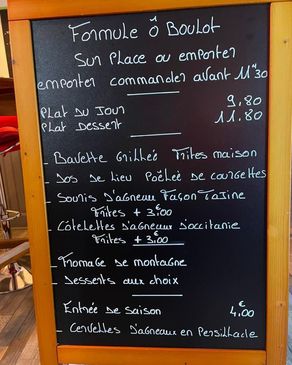 Formule Ô Boulot
Sur Place ou emporter
emporter commander avant 11H30
Plat Du Jour 9.80
Plat Dessert 11.80
- Bavette Grillée Frites maison
- Dos de Lieu Poêlée de courgettes
- Souris D'agneau Façon Tajine
Frites + 3€00
- Côtelettes D'agneau D'occitanie
Frites + 3€00
- Fromage de montagne
- Desserts aux choix
Entrée de saison 4€00
- Cervelles D'agneaux en Persillade